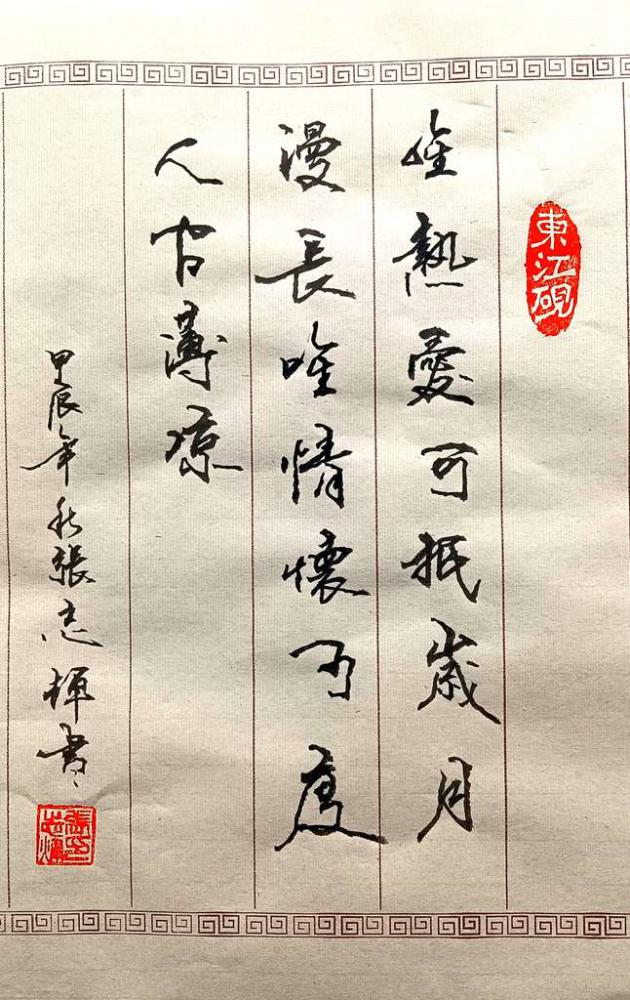 東江硯
唯熱愛可抵歲月
漫長唯情懷可度
人間薄凉
甲辰年秋張志煇書
張志煇印